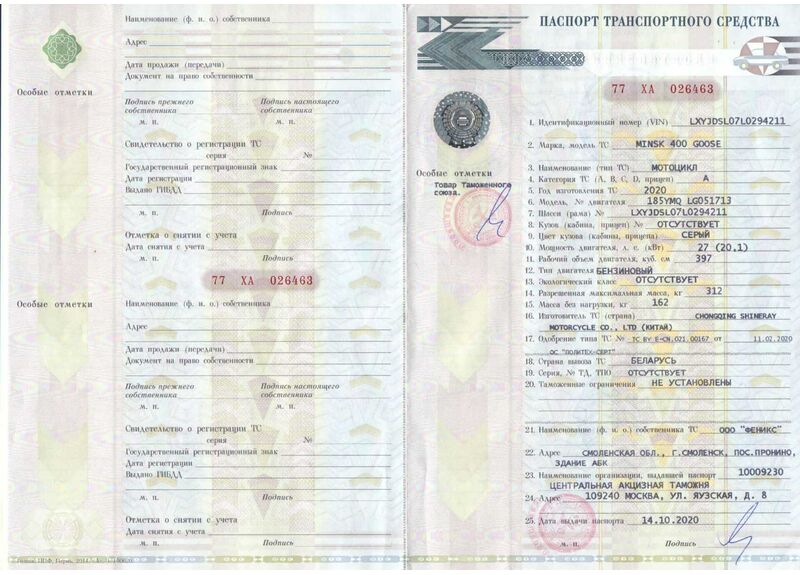 Наименование (ф. и. о.) собственника
Адрес
Дата продажи (передачи)
Документ на право собственности
Особые отметки
Подпись прежнего собственника
Подпись настоящего собственника
М. П.
М. П.
Свидетельство о регистрации ТС
серия №
Государственный регистрационный знак
Дата регистрации
Выдано ГИБДД
М. П. Подпись
Отметка о снятии с учета
Дата снятия с учета
М. П. Подпись
77 ХА 026463
Особые отметки
Наименование (ф. и. о.) собственника
Адрес
Дата продажи (передачи)
Документ на право собственности
Подпись прежнего собственника
Подпись настоящего собственника
М. П.
М. П.
Свидетельство о регистрации ТС
серия №
Государственный регистрационный знак
Дата регистрации
Выдано ГИБДД
М. П. Подпись
Отметка о снятии с учета
Дата снятия с учета
М. П. Подпись
ПАСПОРТ ТРАНСПОРТНОГО СРЕДСТВА
77 ХА 026463
Особые отметки
Товар Таможенного
союза.
1. Идентификационный номер (VIN) LXYJDSL07L0294211
2. Марка, модель ТС MINSK 400 GOOSE
3. Наименование (тип ТС) МОТОЦИКЛ
4. Категория ТС (A, B, C, D, прицеп) A
5. Год изготовления ТС 2020
6. Модель, № двигателя 185YMQ LG051713
7. Шасси (рама) № LXYJDSL07L0294211
8. Кузов (кабина, прицеп) № ОТСУТСТВУЕТ
9. Цвет кузова (кабины, прицепа) СЕРЫЙ
10. Мощность двигателя, л. с. (кВт) 27 (20.1)
11. Рабочий объем двигателя, куб. см 397
12. Тип двигателя БЕНЗИНОВЫЙ
13. Экологический класс ОТСУТСТВУЕТ
14. Разрешенная максимальная масса, кг 312
15. Масса без нагрузки, кг 162
16. Изготовитель ТС (страна) CHONGQING SHINERAY
MOTORCYCLE CO., LTD (КИТАЙ)
17. Одобрение типа ТС № ТС BY E-CN.021.00167 от 11.02.2020
ОС "ПОЛИТЕХ-СЕРТ"
18. Страна вывоза ТС БЕЛАРУСЬ
19. Серия, № ТД, ТПО ОТСУТСТВУЕТ
20. Таможенные ограничения НЕ УСТАНОВЛЕНЫ
21. Наименование (ф. и. о.) собственника ТС ООО "ФЕНИКС"
22. Адрес СМОЛЕНСКАЯ ОБЛ., Г.СМОЛЕНСК, ПОС.ПРОНИНО,
ЗДАНИЕ АБК
23. Наименование организации, выдавшей паспорт 10009230
ЦЕНТРАЛЬНАЯ АКЦИЗНАЯ ТАМОЖНЯ
24. Адрес 109240 МОСКВА, УЛ. ЯУЗСКАЯ, Д. 8
25. Дата выдачи паспорта 14.10.2020
М. П. Подпись